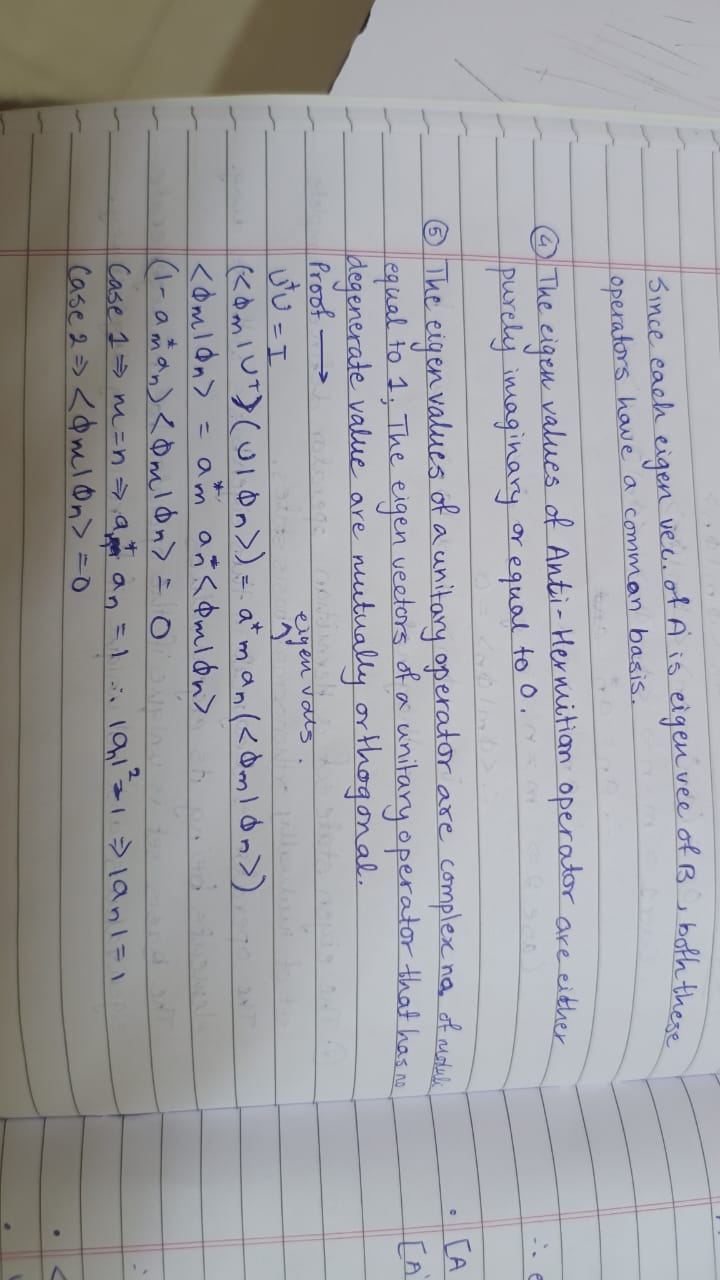 Since each eigen vec. of A is eigen vec of B, both these
operators have a common basis.
④ The eigen values of Anti-Hermition operator are either
purely imaginary or equal to 0.
⑤ The eigen values of a unitary operator are complex no. of moduli
equal to 1, The eigen vectors of a unitary operator that has no
degenerate value are mutually orthogonal.
Proof →
eigen vals.
U†U = I
(<Φm|U†)(U|Φn>) = a*m an(<Φm|Φn>)
<Φm|Φn> = a*m a*n<Φm|Φn>
(1-a*m an)<Φm|Φn> = 0
Case 1 ⇒ m=n ⇒ an* an = 1 ∴ |an|² = 1 ⇒ |an| = 1
Case 2 ⇒ <Φm|Φn> = 0
∴ e
• [A
[A